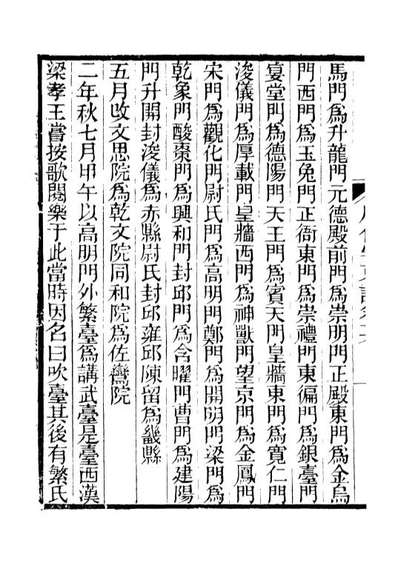 馬門為升龍門元德殿前門為崇明門正殿東門為金烏
門西門為玉兔門正衙東門為崇禮門東偏門為銀臺門
宴堂門為德陽門天王門為賓天門皇牆東門為寬仁門
浚儀門為厚載門皇牆西門為神獸門望京門為金鳳門
宋門為觀化門尉氏門為高明門鄭門為開明門梁門為
乾象門酸棗門為興和門封邱門為含曜門曹門為建陽
門升開封浚儀為赤縣尉氏封邱雍邱陳留為畿縣
五月改文思院為乾文院同和院為佐鸞院
二年秋七月甲午以高明門外繁臺為講武臺是臺西漢
梁孝王嘗按歌閱樂于此當時因名曰吹臺其後有繁氏